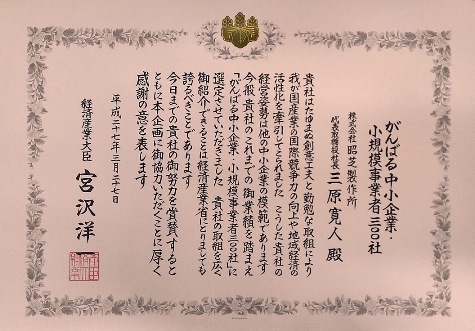 がんばる中小企業・
小規模事業者三〇〇社
株式会社昭芝製作所
代表取締役社長 三原寛人 殿
貴社はたゆまぬ創意工夫と勤勉な取組により
我が国産業の国際競争力の向上や地域経済の
活性化を牽引してこられました こうした貴社の
経営姿勢は他の中小企業の模範であります
今般貴社のこれまでの御業績を踏まえ
「がんばる中小企業・小規模事業者三〇〇社」に
選定させていただきました 貴社の取組を広く
御紹介できることは経済産業省にとりましても
誇るべきことであります
今日までの貴社の御努力を賞賛すると
ともに本企画に御協力いただくことに厚く
感謝の意を表します
平成二十七年三月二十七日
経済産業大臣 宮沢洋一